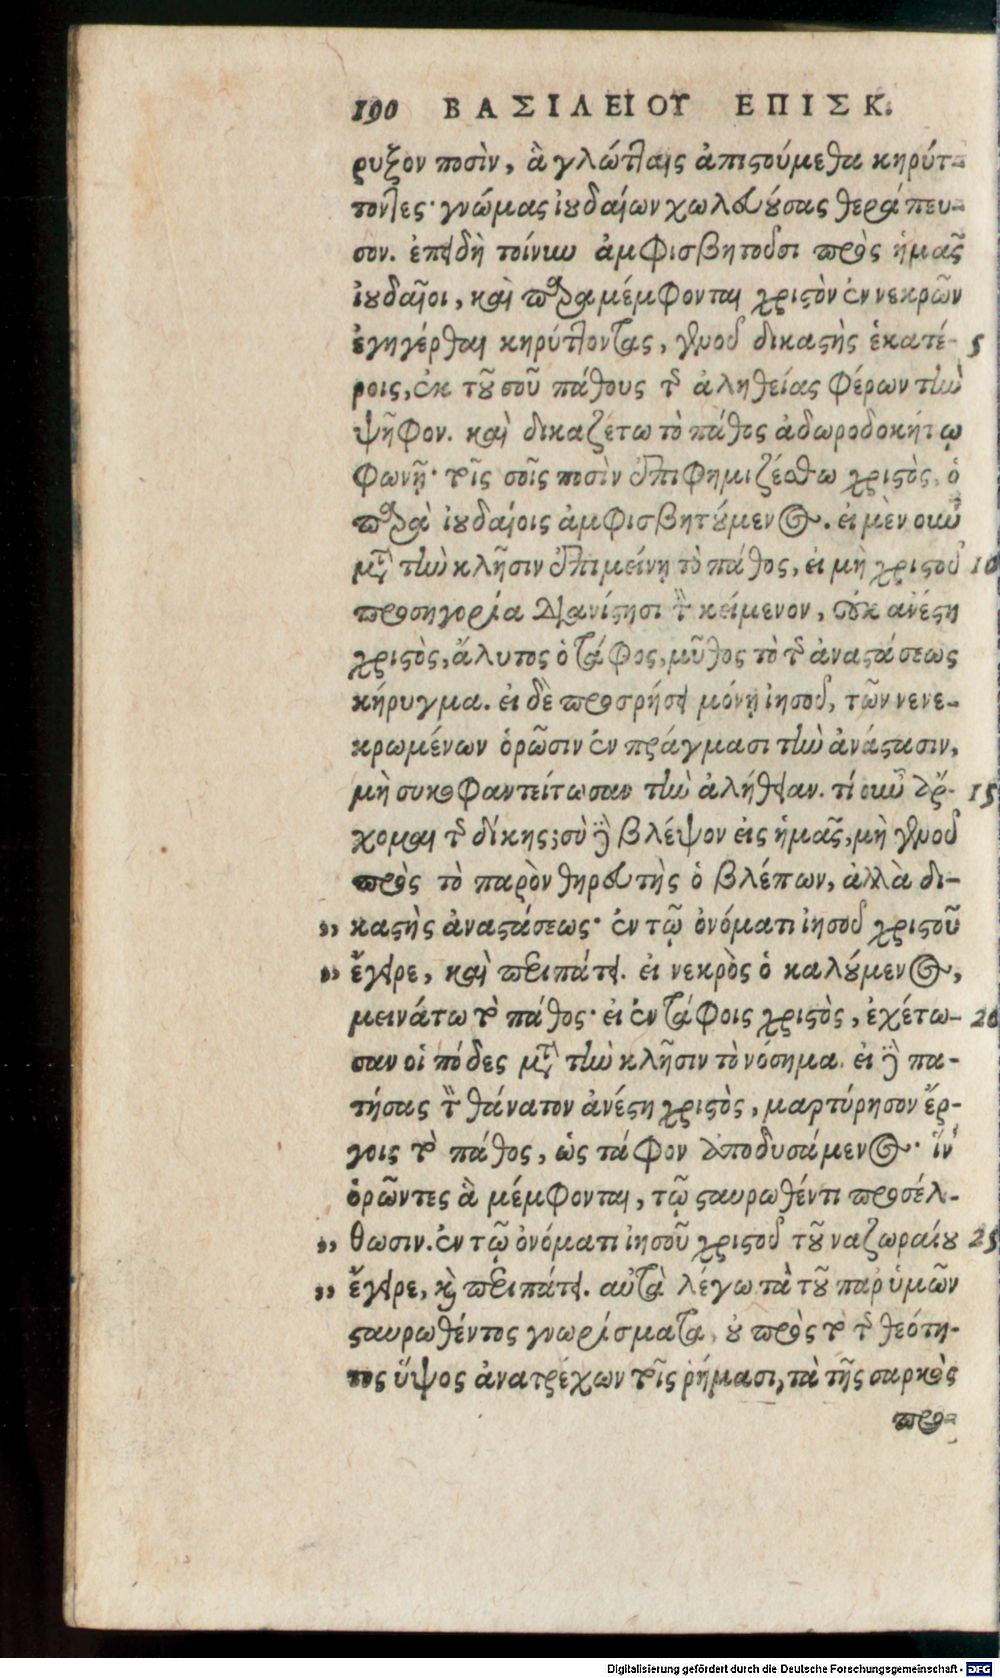 190 ΒΑΣΙΛΕΙΟΥ ΕΠΙΣΚ.
ρυξον ποσὶν, ἃ γλώτταις ἀπιστούμεθα κηρύτ-
τοντες· γνώμας ἰουδαίων χωλευούσας θεράπευ-
σον. ἐπειδὴ τοίνυν ἀμφισβητοῦσι πρὸς ἡμᾶς
ἰουδαῖοι, καὶ παραμέμφονται χριστὸν ἐν νεκρῶν
ἐγηγέρθαι κηρύττοντας, γενοῦ δικαστὴς ἑκατέ- 5
ροις, ἐκ τοῦ σοῦ πάθους τῆς ἀληθείας φέρων τὴν
ψῆφον. καὶ δικαζέτω τὸ πάθος ἀδωροδοκήτῳ
φωνῇ· τοῖς σοῖς ποσὶν ἐπιφημιζέσθω χριστὸς, ὁ
παρὰ ἰουδαίοις ἀμφισβητούμενος. εἰ μὲν οὖν
μετὰ τὴν κλῆσιν ἐπιμείνῃ τὸ πάθος, εἰ μὴ χριστοῦ 10
προσηγορία διανίστησι τὸν κείμενον, οὐκ ἀνέστη
χριστὸς, ἄλυτος ὁ τάφος, μῦθος τὸ τῆς ἀναστάσεως
κήρυγμα. εἰ δὲ προσρήσει μόνῃ ἰησοῦ, τῶν νενε-
κρωμένων ὁρῶσιν ἐν πράγμασι τὴν ἀνάστασιν,
μὴ συκοφαντείτωσαν τὴν ἀλήθειαν. τί οὖν ἄρ- 15
χομαι τῆς δίκης; σὺ δὲ βλέψον εἰς ἡμᾶς, μὴ γενοῦ
πρὸς τὸ παρὸν θηρευτὴς ὁ βλέπων, ἀλλὰ δι-
„ καστὴς ἀναστάσεως· ἐν τῷ ὀνόματι ἰησοῦ χριστοῦ
„ ἔγειρε, καὶ περιπάτει. εἰ νεκρὸς ὁ καλούμενος,
μεινάτω τὸ πάθος· εἰ ἐν τάφοις χριστὸς, ἐχέτω- 20
σαν οἱ πόδες μετὰ τὴν κλῆσιν τὸ νόσημα. εἰ δὲ πα-
τήσας τὸν θάνατον ἀνέστη χριστὸς, μαρτύρησον ἔρ-
γοις τὸ πάθος, ὡς τάφον ἀποδυσάμενος· ἵν'
ὁρῶντες ἃ μέμφονται, τῷ σταυρωθέντι προσέλ-
„ θωσιν. ἐν τῷ ὀνόματι ἰησοῦ χριστοῦ τοῦ ναζωραίου 25
„ ἔγειρε, καὶ περιπάτει. αὐτὰ λέγω τὰ τοῦ παρ' ὑμῶν
σταυρωθέντος γνωρίσματα, οὐ πρὸς τὸ τῆς θεότη-
τος ὕψος ἀνατρέχων τοῖς ῥήμασι, τὰ τῆς σαρκὸς
προ-
Digitalisierung gefördert durch die Deutsche Forschungsgemeinschaft - DFG